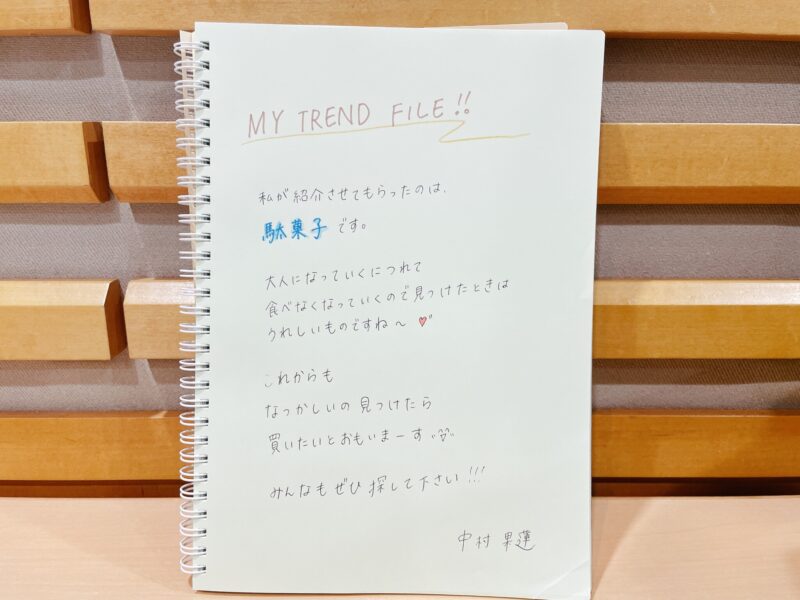 MY TREND FILE!!
私が紹介させてもらったのは、
駄菓子です。
大人になっていくにつれて
食べなくなっていくので見つけたときは
うれしいものですね〜♥
これからも
なつかしいの見つけたら
買いたいとおもいまーす
みんなもぜひ探して下さい!!!
中村 果蓮